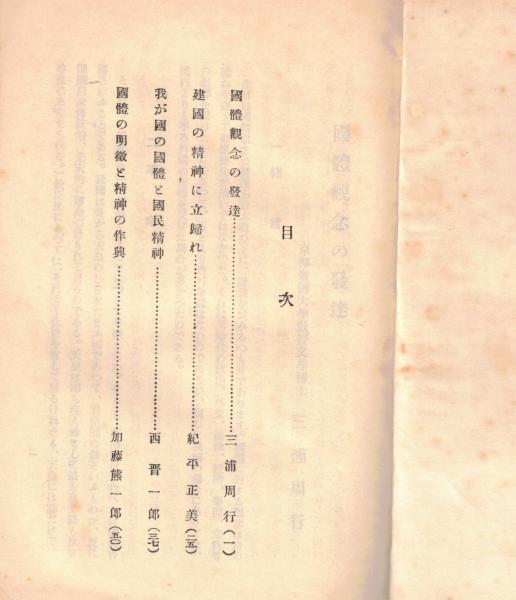 目次
國體觀念の發達…………………………三浦周行(一)
建國の精神に立歸れ…………………………紀平正美(二五)
我が國の國體と國民精神…………………………西晋一郎(三七)
國體の明徵と精神の作興…………………………加藤熊一郎(五〇)